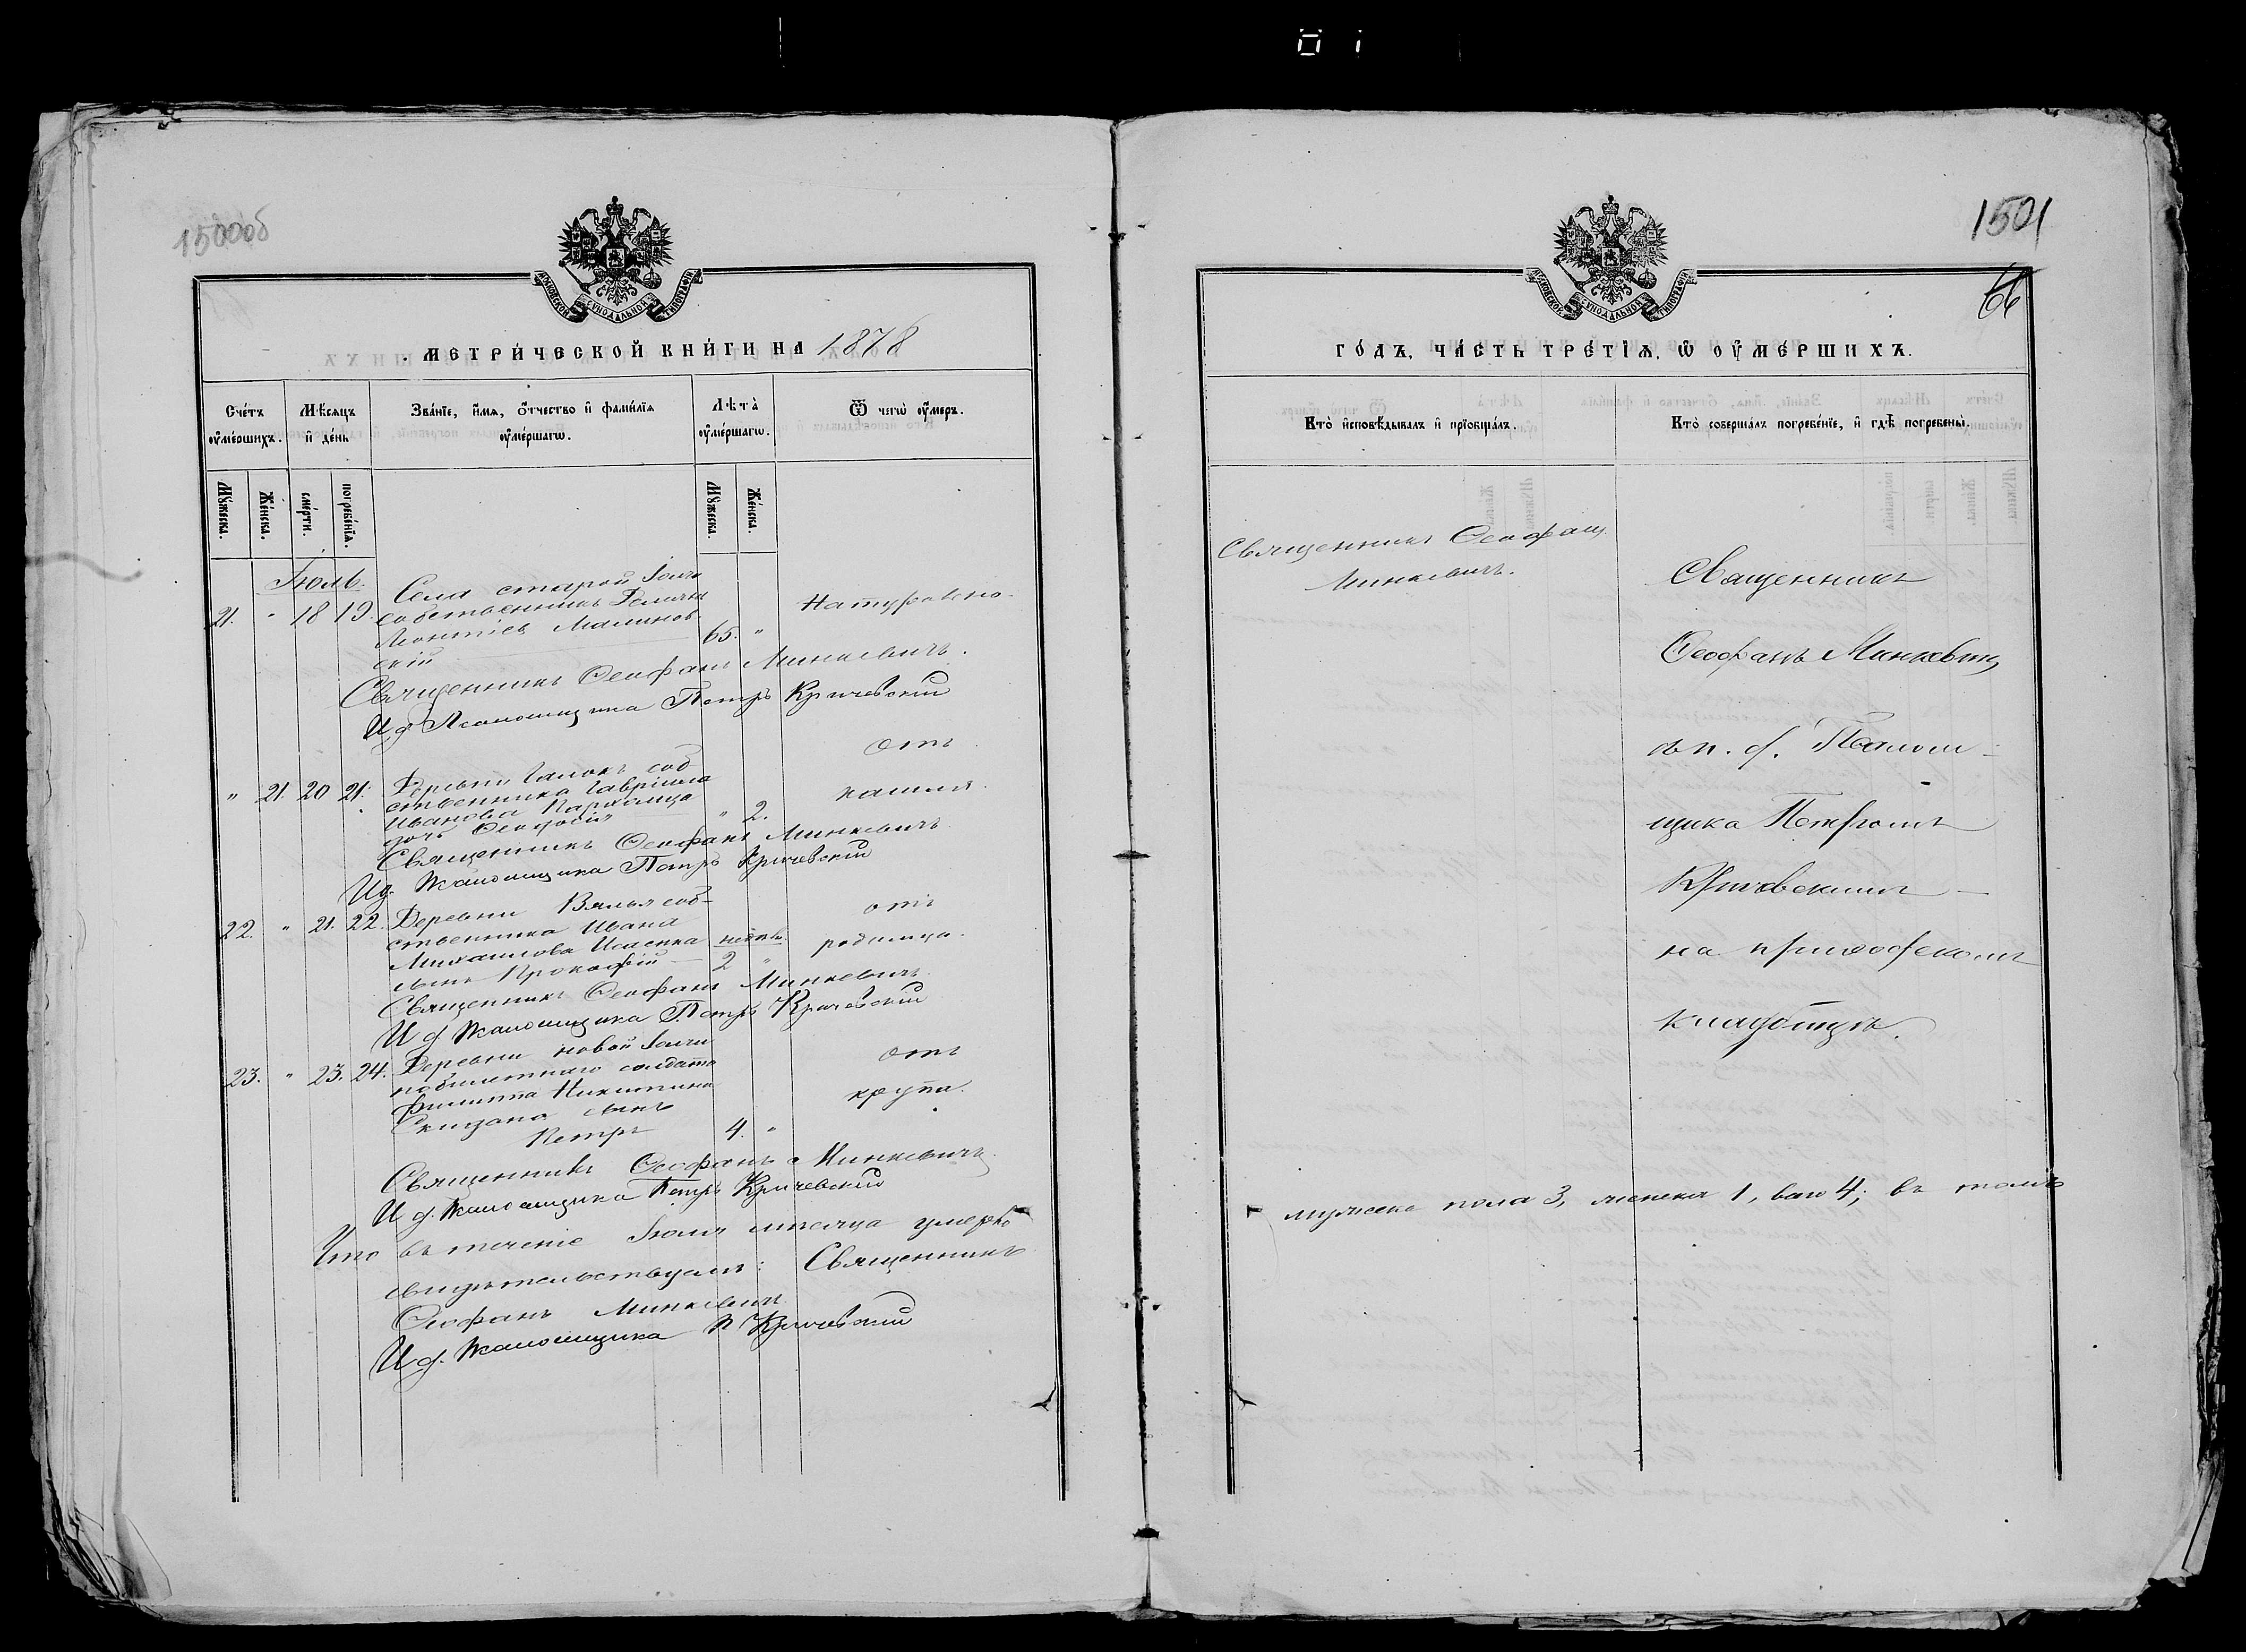 1500об
МОСКОВСКОЙ СѴНОДАЛЬНОЙ ТИПОГРАФІИ
МЕТРИ́ЧЕСКОЙ КНИ́ГИ НА 1878
Сче́тъ ᲂу҆ме́ршихъ.
Мѣ́сяцъ и҆ де́нь
Зва́нїе, и҆́мя, ѻ҆́тчество и҆ фами́лїя ᲂу҆ме́ршагѡ.
Лѣ́та̀ ᲂу҆ме́ршагѡ.
Ѿ чегѡ̀ ᲂу҆́меръ.
Мꙋ́жеска.
Же́нска.
сме́рти.
погребе́нїѧ.
Мꙋ́жеска.
Же́нска.
Іюль.
21. " 18 19. Села старой
собственникъ
Леонтіев Малинов-
скій 65. " Натурально.
Священникъ Ѳеофанъ Минкевичъ.
И д Псаломщика Петръ Кричевскій
" 21. 20 21. Деревни соб-
ственника Гавріила
Иванова
дочь Ѳеодосія " 2. отъ кашля.
Священникъ Ѳеофанъ Минкевичъ
Ид. Псаломщика Петръ Кричевскій
22. " 21. 22. Деревни соб-
ственника Ивана
Михаилова Исаенка недѣль
сынъ Прокофій 2 " отъ родимца.
Священникъ Ѳеофанъ Минкевичъ
И д Псаломщика Петръ Кричевскій
23. " 23. 24. Деревни новой
солдата
Филиппа Никитина
сынъ
Петръ 4. " отъ крупа.
Священникъ Ѳеофанъ Минкевичъ
И д. Псаломщика Петръ Кричевскій
Что въ теченіе Іюля мѣсяца умерло
свидѣтельствуемъ: Священникъ
Ѳеофанъ Минкевичъ
И д. Псаломщика П Кричевскій
1501
66
МОСКОВСКОЙ СѴНОДАЛЬНОЙ ТИПОГРАФІИ
ГО́ДЪ, ЧА́СТЬ ТРЕ́ТЇѦ, Ѡ҆ ОУ҆МЕ́РШИХЪ.
Кто̀ и҆сповѣ́дывалъ и҆ прїѡбща́лъ.
Кто̀ соверша́лъ погребе́нїе, и҆ гдѣ̀ погребены̀.
Священникъ Ѳеофанъ
Минкевичъ.
Священникъ
Ѳеофанъ Минкевичъ
съ и. д. Псалом-
щика Петромъ
Кричевскимъ
на приходскомъ
кладбищѣ.
мужеска пола 3, женска 1, всего 4; въ томъ